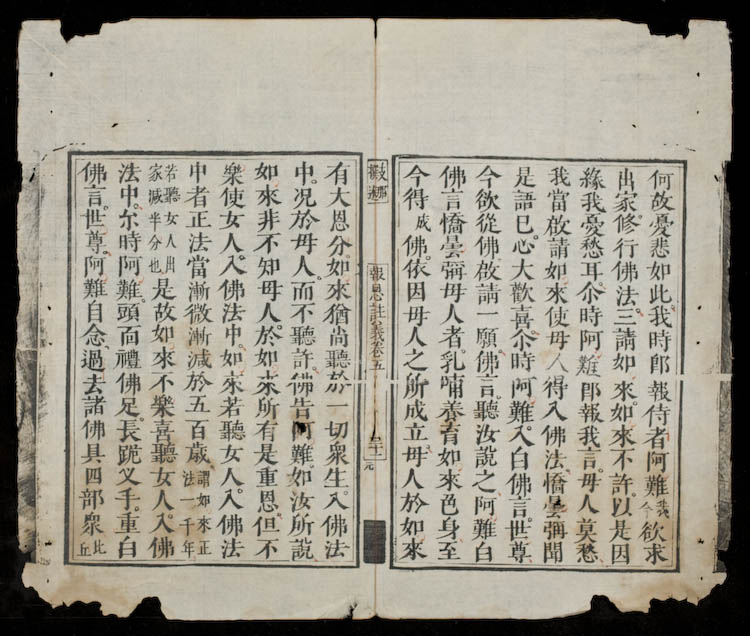 何故憂悲如此我時即報侍者阿難我今欲求
出家修行佛法三請如來如來不許以是因
緣我憂愁耳尒時阿難即報我言母人莫愁
我當啟請如來使母人得入佛法憍曇彌聞
是語已心大歡喜尒時阿難入白佛言世尊
今欲從佛啟請一願佛言聽汝說之阿難白
佛言憍曇彌母人者乳哺養育如來色身至
今得成佛依因母人之所成立母人於如來
報恩註義卷五
元
有大恩分如來猶尚聽於一切衆生入佛法
中況於母人而不聽許佛告阿難如汝所說
如來非不知母人於如來所有是重恩但不
樂使女人入佛法中如來若聽女人入佛法
中者正法當漸微漸減於五百歲謂如來正法一千年
若聽女人出家減半分也是故如來不樂喜聽女人入佛
法中尒時阿難頭面禮佛足長跪叉手重白
佛言世尊阿難自念過去諸佛具四部衆比丘